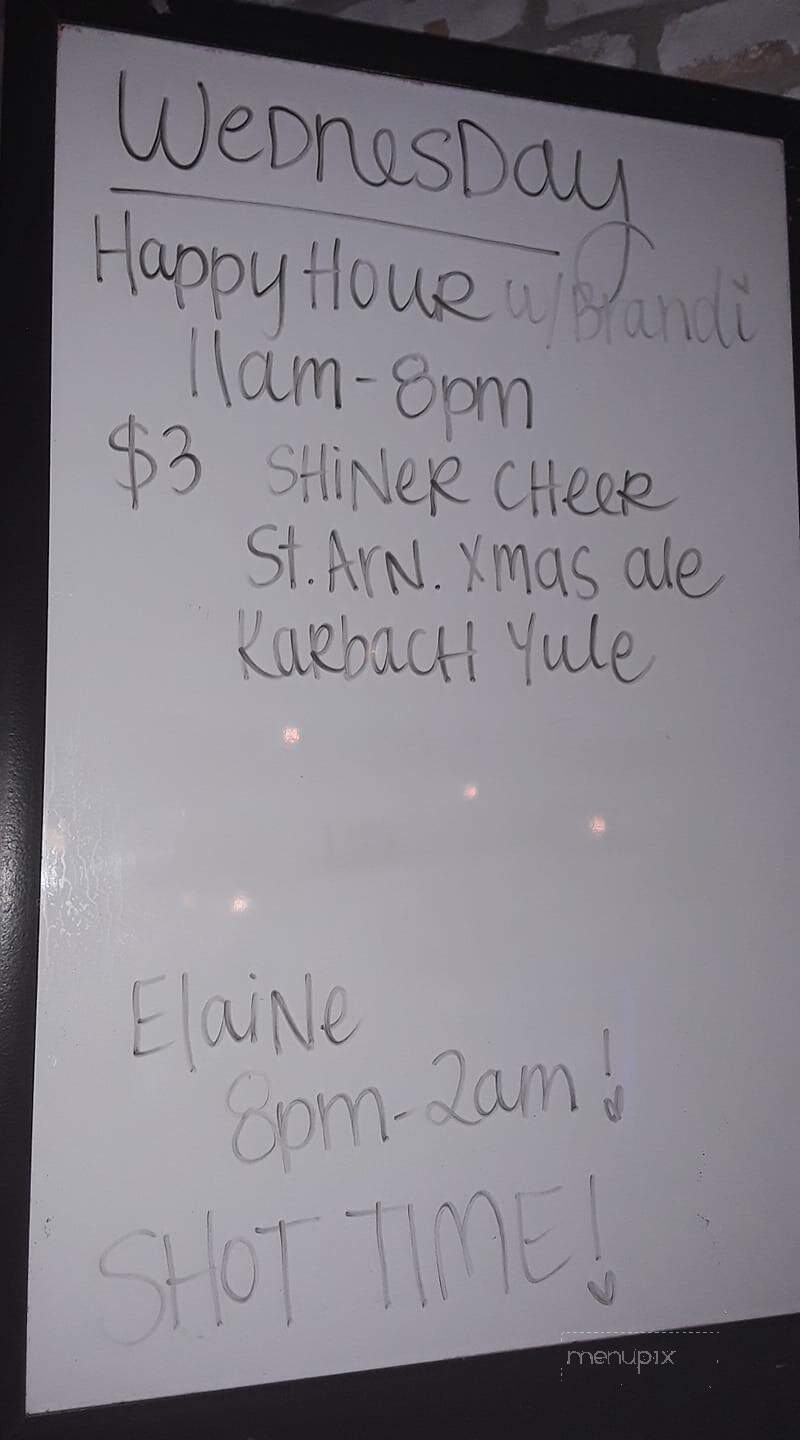 WeDnesDay
Happy Hour w/Brandi
11am-8pm
$3 SHiNeR CHeeR
St. ArN. Xmas ale
KaRbacH Yule
ElaiNe
8pm-2am!
SHOT TIME!
menupix